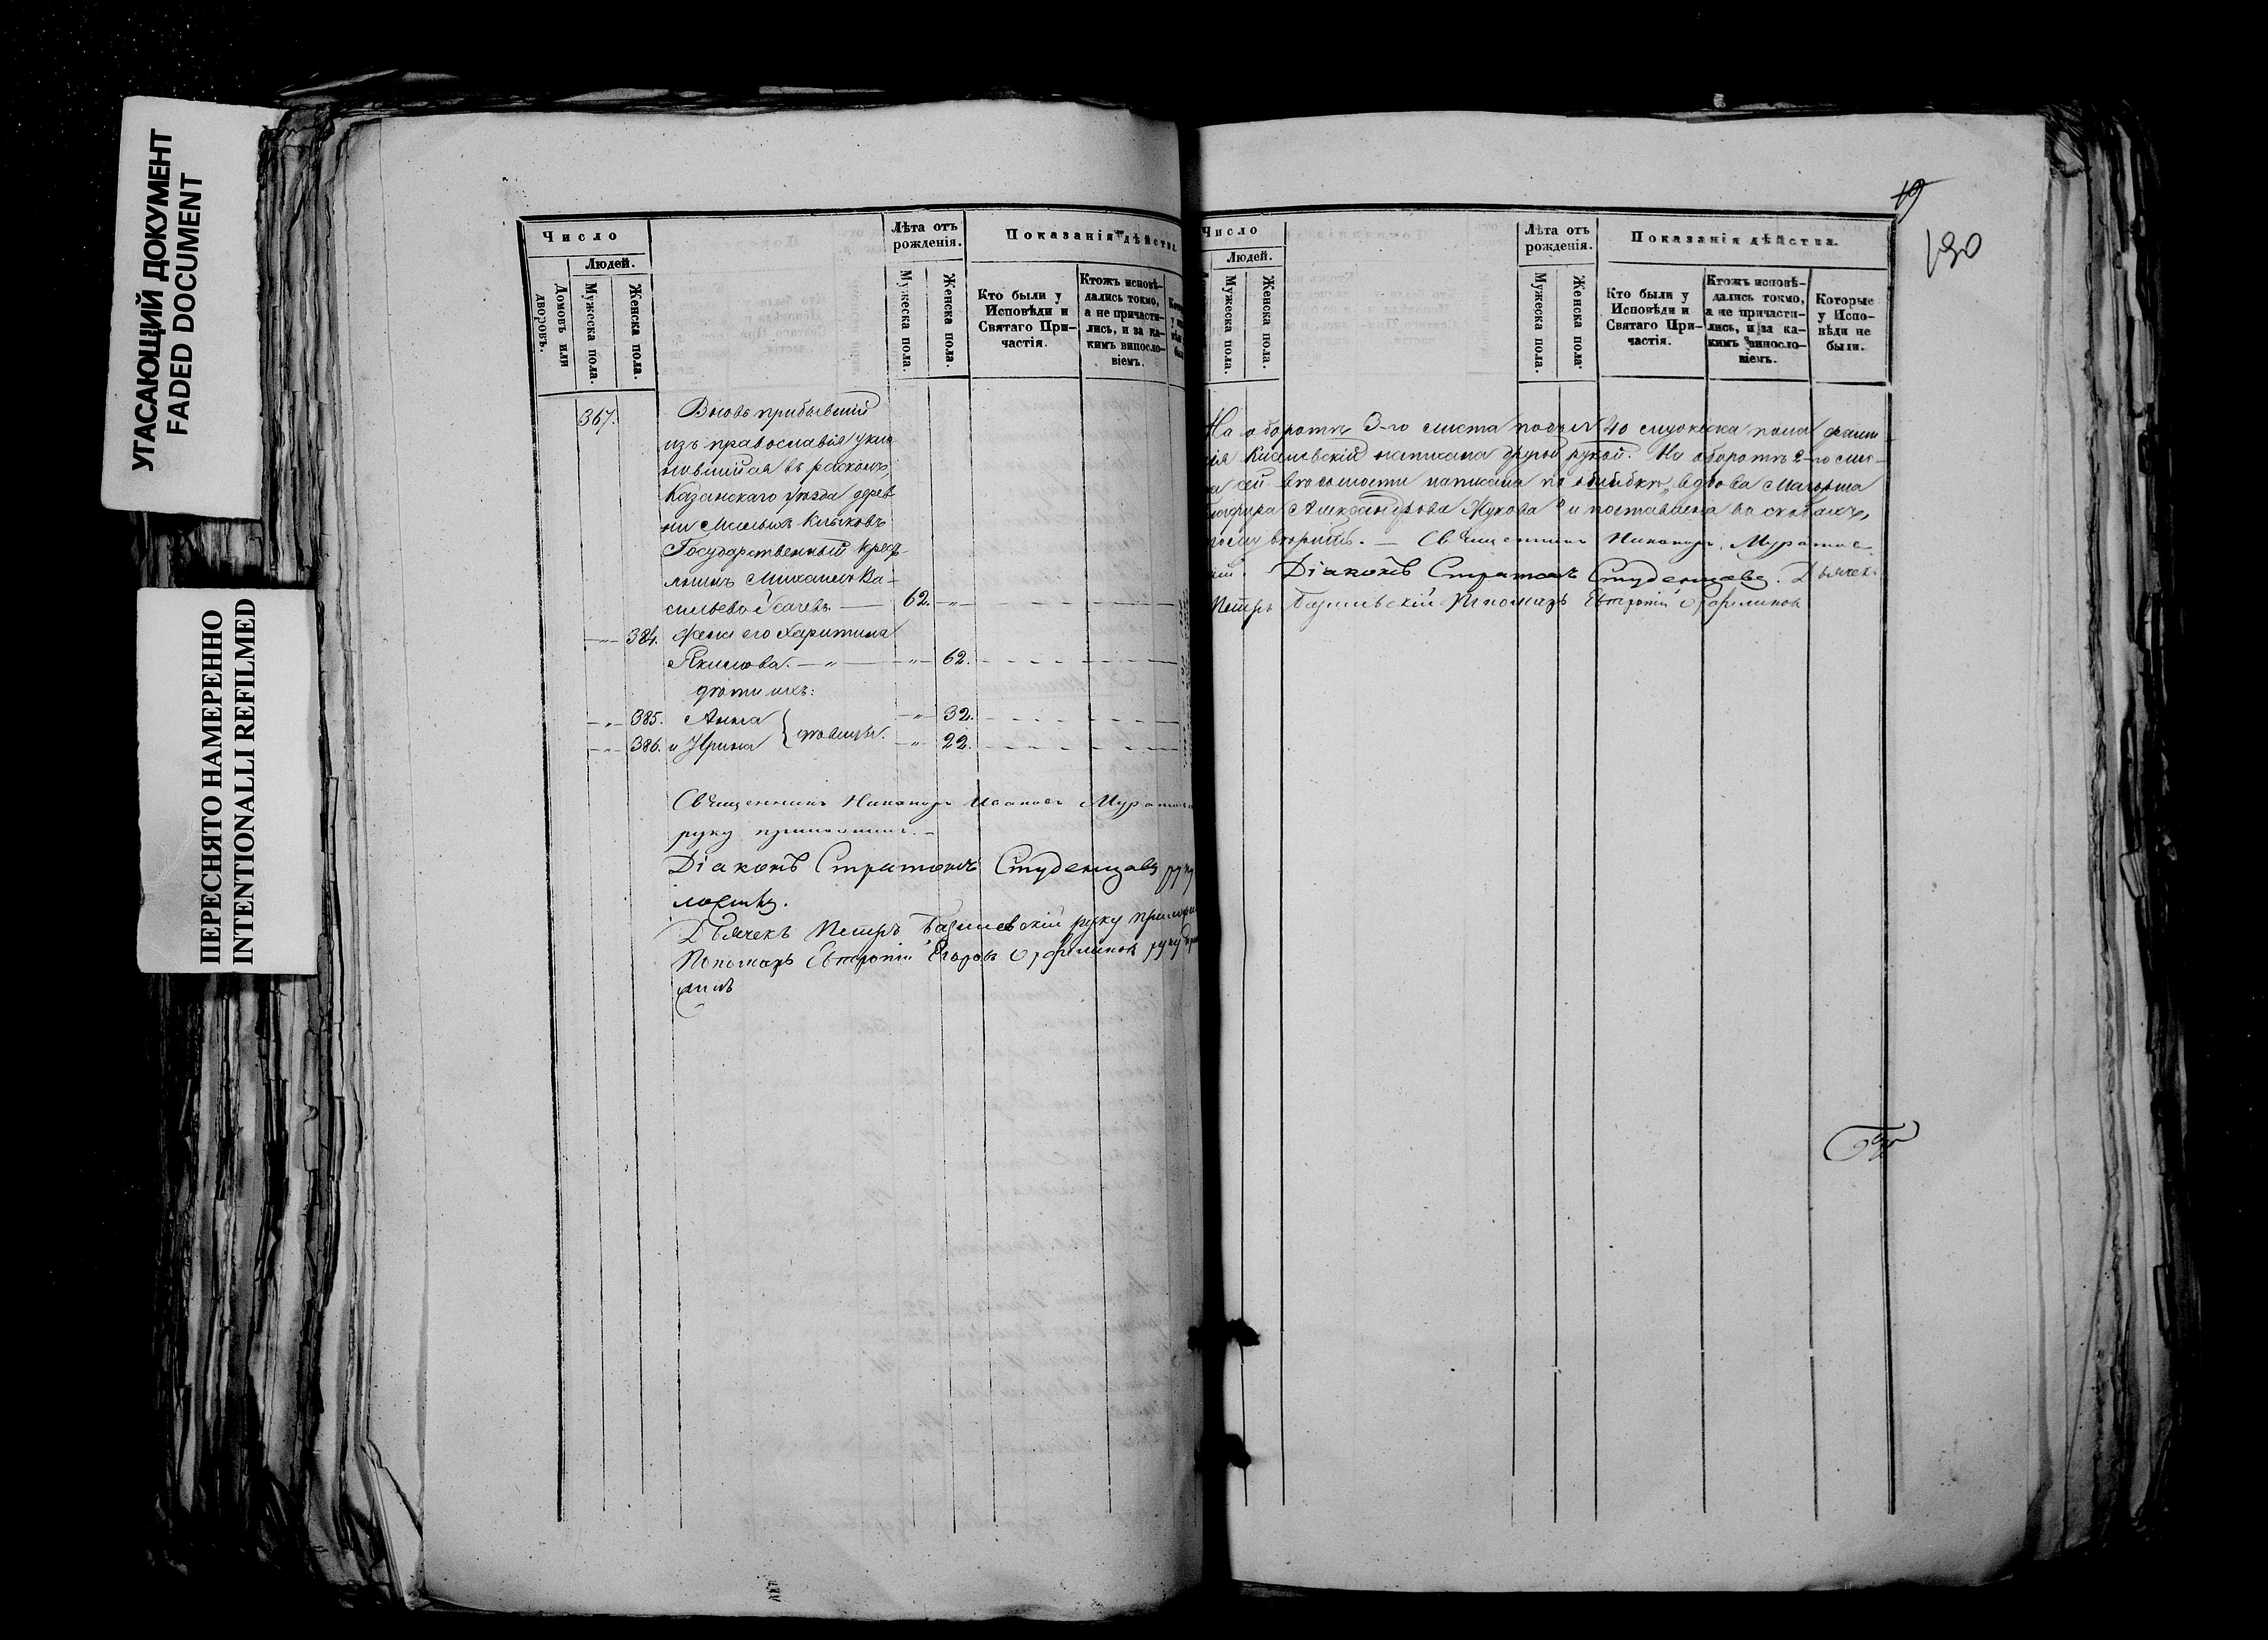 УГАСАЮЩИЙ ДОКУМЕНТ
FADED DOCUMENT
ПЕРЕСНЯТО НАМЕРЕННО
INTENTIONALLI REFILMED
Число
Людей.
Домовъ или дворовъ.
Мужеска пола.
Женска пола.
Лѣта отъ рожденія.
Мужеска пола.
Женска пола.
Показанія дѣйства
Кто были у Исповѣди и Святаго Причастія.
Ктожъ исповѣдались токмо, а не причастились, и за какимъ винословіемъ.
367. Вновь прибывшій
изъ православія укло
нившійся въ расколъ,
Казанскаго уѣзда дерев
ни Малыхъ Клыковъ
Государственный крестья-
нинъ Михаилъ Ва-
сильевъ Усачевъ — 62. „
„ 384. жена его Харитина
Якимова. „ „ 62.
дѣти ихъ:
„ 385. Анна } дѣвицы. „ 32.
„ 386. и Ирина „ 22.
Священникъ Никаноръ Ивановъ
руку приложилъ.
Діаконъ Стратонъ Студенцовъ руку
ложилъ.
Дьячекъ Петръ руку
Пономарь Евтропій Егоровъ руку
жилъ
19
130
Число
Людей.
Мужеска пола.
Женска пола.
Лѣта отъ рожденія.
Мужеска пола.
Женска пола
Показанія дѣйства.
Кто были у Исповѣди и Святаго Причастія.
Ктожъ исповѣдались токмо, а не причастились, и за какимъ винословіемъ.
Которые у Исповѣди не были.
На оборотѣ 3-го листа подъ № 40 мужеска пола фами
лія написана другой рукой. На оборотѣ 2-го лис-
та сей вѣдомости написана по ошибкѣ „вдова
Александрова Жукова“ и поставлена въ скобахъ,
вѣрить. — Священникъ Никаноръ
Діаконъ Стратонъ Студенцовъ. Дьячекъ
Петръ Пономарь Евтропій